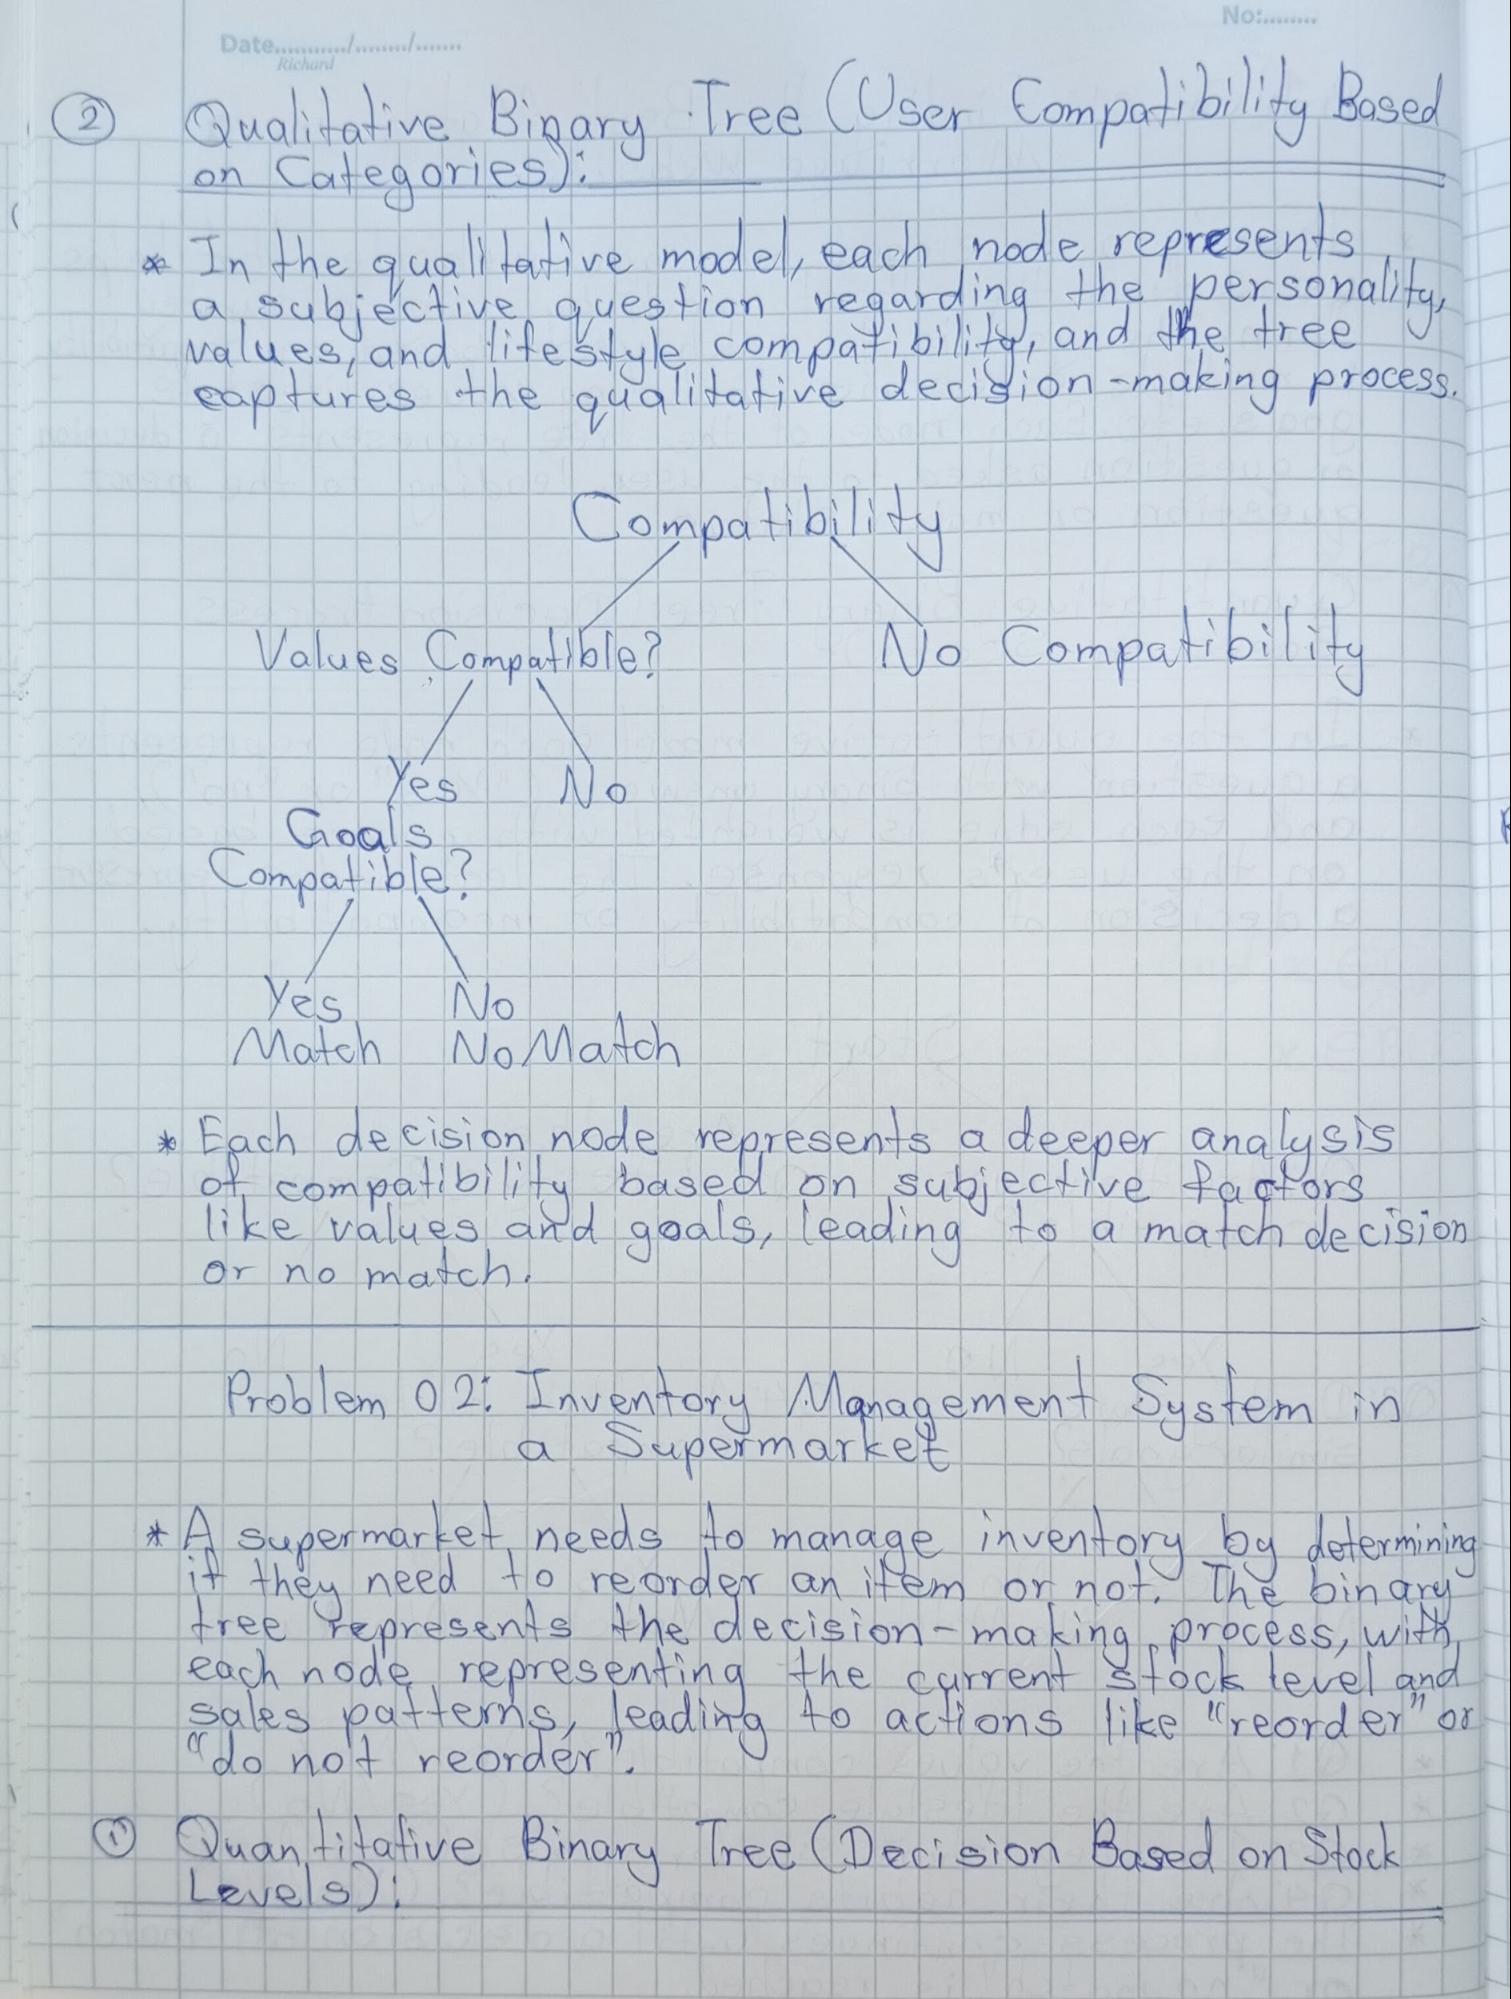 No:........
Date.........../......../.......
Richard
② Qualitative Binary Tree (User Compatibility Based
on Categories):
* In the qualitative model, each node represents
a subjective question regarding the personality,
values, and lifestyle compatibility, and the tree
captures the qualitative decision-making process.
Compatibility
Values Compatible? No Compatibility
Yes No
Goals
Compatible?
Yes No
Match No Match
* Each decision node represents a deeper analysis
of compatibility based on subjective factors
like values and goals, leading to a match decision
or no match.
Problem 02: Inventory Management System in
a Supermarket
* A supermarket needs to manage inventory by determining
if they need to reorder an item or not. The binary
tree represents the decision-making process, with
each node representing the current stock level and
sales patterns, leading to actions like "reorder" or
"do not reorder".
① Quantitative Binary Tree (Decision Based on Stock
Levels):